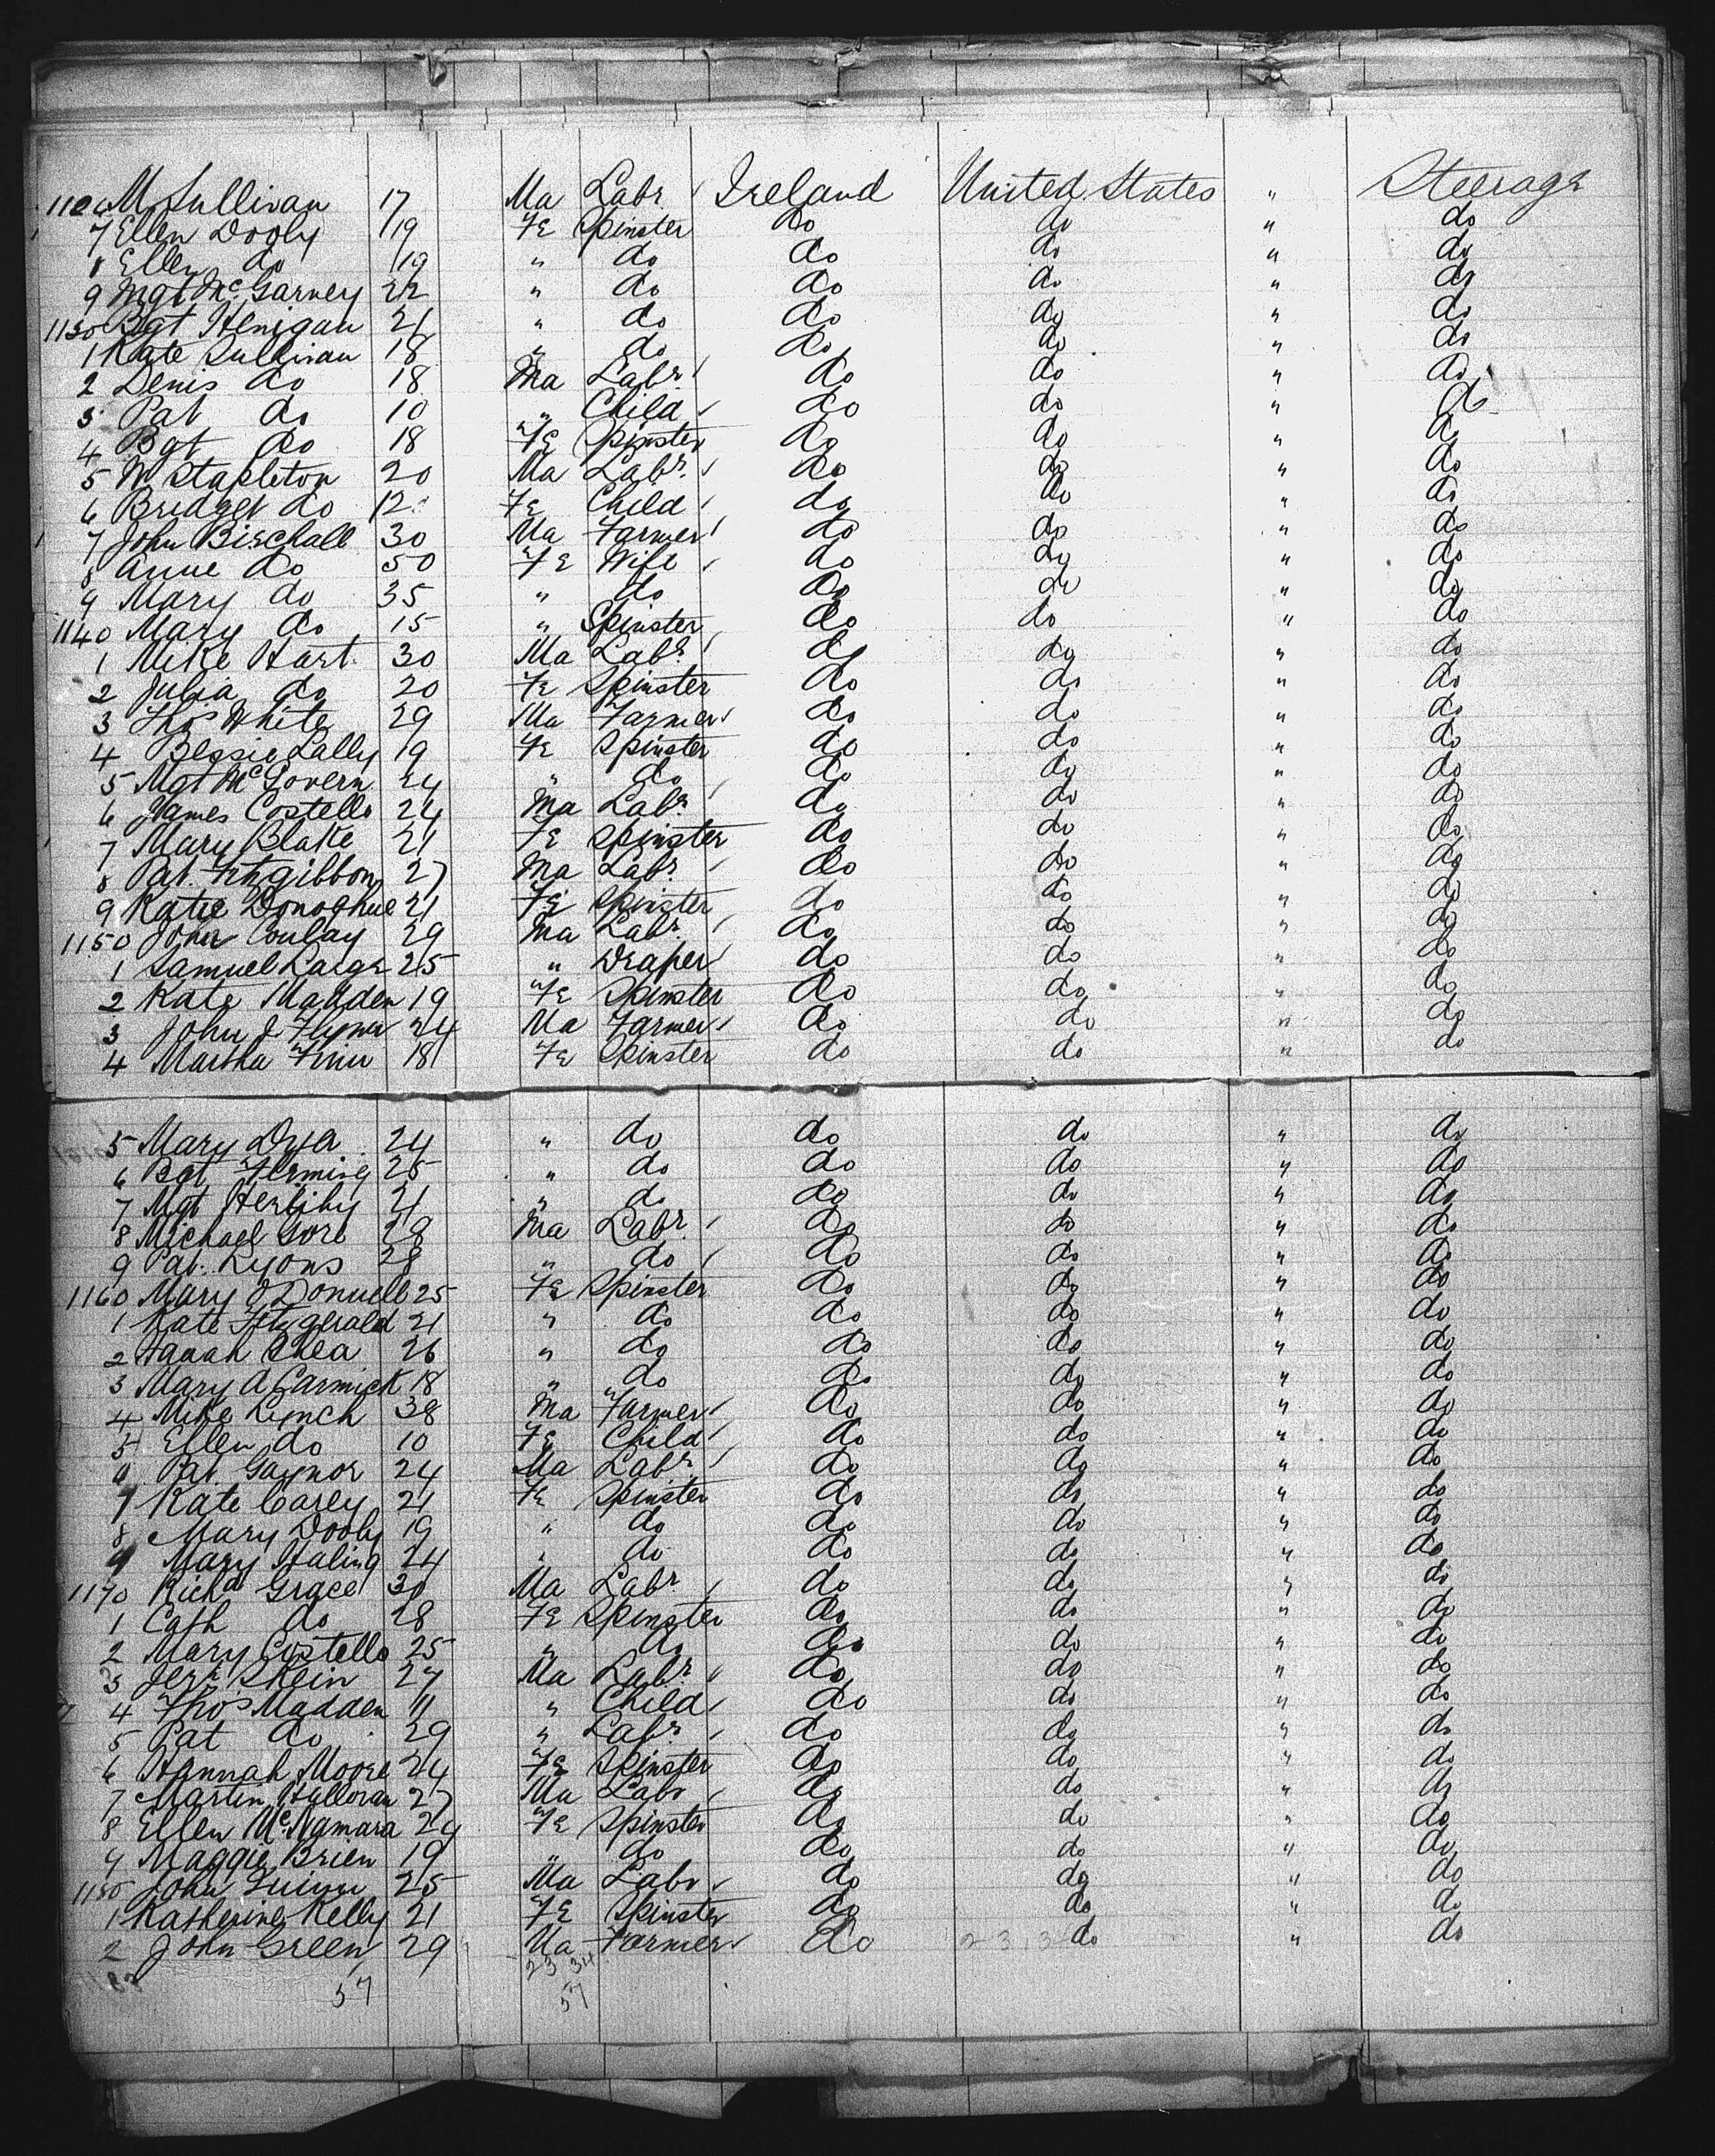 1126 M Sullivan 17 Ma Labr Ireland United States " Steerage
7 Ellen Dooly 19 Fe Spinster do do " do
8 Ellen do 19 " do do do " do
9 Mgt McGarvey 22 " do do do " do
1130 Bgt Henigan 21 " do do do " do
1 Kate Sullivan 18 " do do do " do
2 Denis do 18 Ma Labr do do " do
3 Pat do 10 " Child do do " do
4 Bgt do 18 Fe Spinster do do " do
5 W Stapleton 20 Ma Labr do do " do
6 Bridget do 12 Fe Child do do " do
7 John Bischall 30 Ma Farmer do do " do
8 Anne do 50 Fe Wife do do " do
9 Mary do 35 " do do do " do
1140 Mary do 15 " Spinster do do " do
1 Mike Hart 30 Ma Labr do do " do
2 Julia do 20 Fe Spinster do do " do
3 Thos White 29 Ma Farmer do do " do
4 Bessie Lally 19 Fe Spinster do do " do
5 Mgt McGovern 24 " do do do " do
6 James Costello 24 Ma Labr do do " do
7 Mary Blake 21 Fe Spinster do do " do
8 Pat. Fitzgibbon 27 Ma Labr do do " do
9 Katie Donoghue 21 Fe Spinster do do " do
1150 John Conlay 29 Ma Labr do do " do
1 Samuel Large 25 " Draper do do " do
2 Kate Madden 19 Fe Spinster do do " do
3 John J Flynn 24 Ma Farmer do do " do
4 Martha Finn 18 Fe Spinster do do " do
5 Mary Dyer 24 " do do do " do
6 Bgt Fleming 25 " do do do " do
7 Mgt Herlihy 21 " do do do " do
8 Michael Gore 28 Ma Labr do do " do
9 Pat. Lyons 28 " do do do " do
1160 Mary O Donnell 25 Fe Spinster do do " do
1 Kate Fitzgerald 21 " do do do " do
2 Hanah Shea 26 " do do do " do
3 Mary A Carmick 18 " do do do " do
4 Mike Lynch 38 Ma Farmer do do " do
5 Ellen do 10 Fe Child do do " do
6 Pat Gaynor 24 Ma Labr do do " do
7 Kate Carey 21 Fe Spinster do do " do
8 Mary Dooly 19 " do do do " do
9 Mary Haling 24 " do do do " do
1170 Richd Grace 30 Ma Labr do do " do
1 Cath do 28 Fe Spinster do do " do
2 Mary Costello 25 " do do do " do
3 Jerh Skein 27 Ma Labr do do " do
4 Thos Madden 11 " Child do do " do
5 Pat do 29 " Labr do do " do
6 Hannah Moore 24 Fe Spinster do do " do
7 Martin Halloran 27 Ma Labr do do " do
8 Ellen McNamara 24 Fe Spinster do do " do
9 Maggie Brien 19 " do do do " do
1180 John Quinn 25 Ma Labr do do " do
1 Katherine Kelly 21 Fe Spinster do do " do
2 John Green 29 Ma Farmer do do " do
23 34
57 57